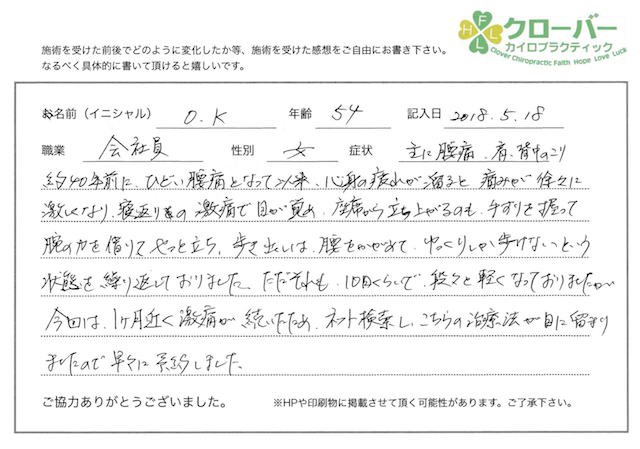 クローバー
カイロプラクティック
Clover Chiropractic Faith Hope Love Luck
H F L L
施術を受けた前後でどのように変化したか等、施術を受けた感想をご自由にお書き下さい。
なるべく具体的に書いて頂けると嬉しいです。
お名前（イニシャル） O.K 年齢 54 記入日 2018.5.18
職業 会社員 性別 女 症状 主に腰痛、肩、背中のこり
約40年前に、ひどい腰痛となって以来、心身の疲れが溜ると痛みが徐々に
激しくなり、寝返りの激痛で目が覚め、座席から立ち上がるのも、手すりを握って
腕の力を借りてやっと立ち、歩き出しは、腰をかがめて、ゆっくりしか歩けないという
状態を繰り返しておりました。ただそれも、10日くらいで、段々と軽くなっておりましたが
今回は、1ヶ月近く激痛が続いたため、ネット検索し、こちらの治療法が目に留まり
ましたので早々に予約しました。
ご協力ありがとうございました。 ※HPや印刷物に掲載させて頂く可能性があります。ご了承下さい。